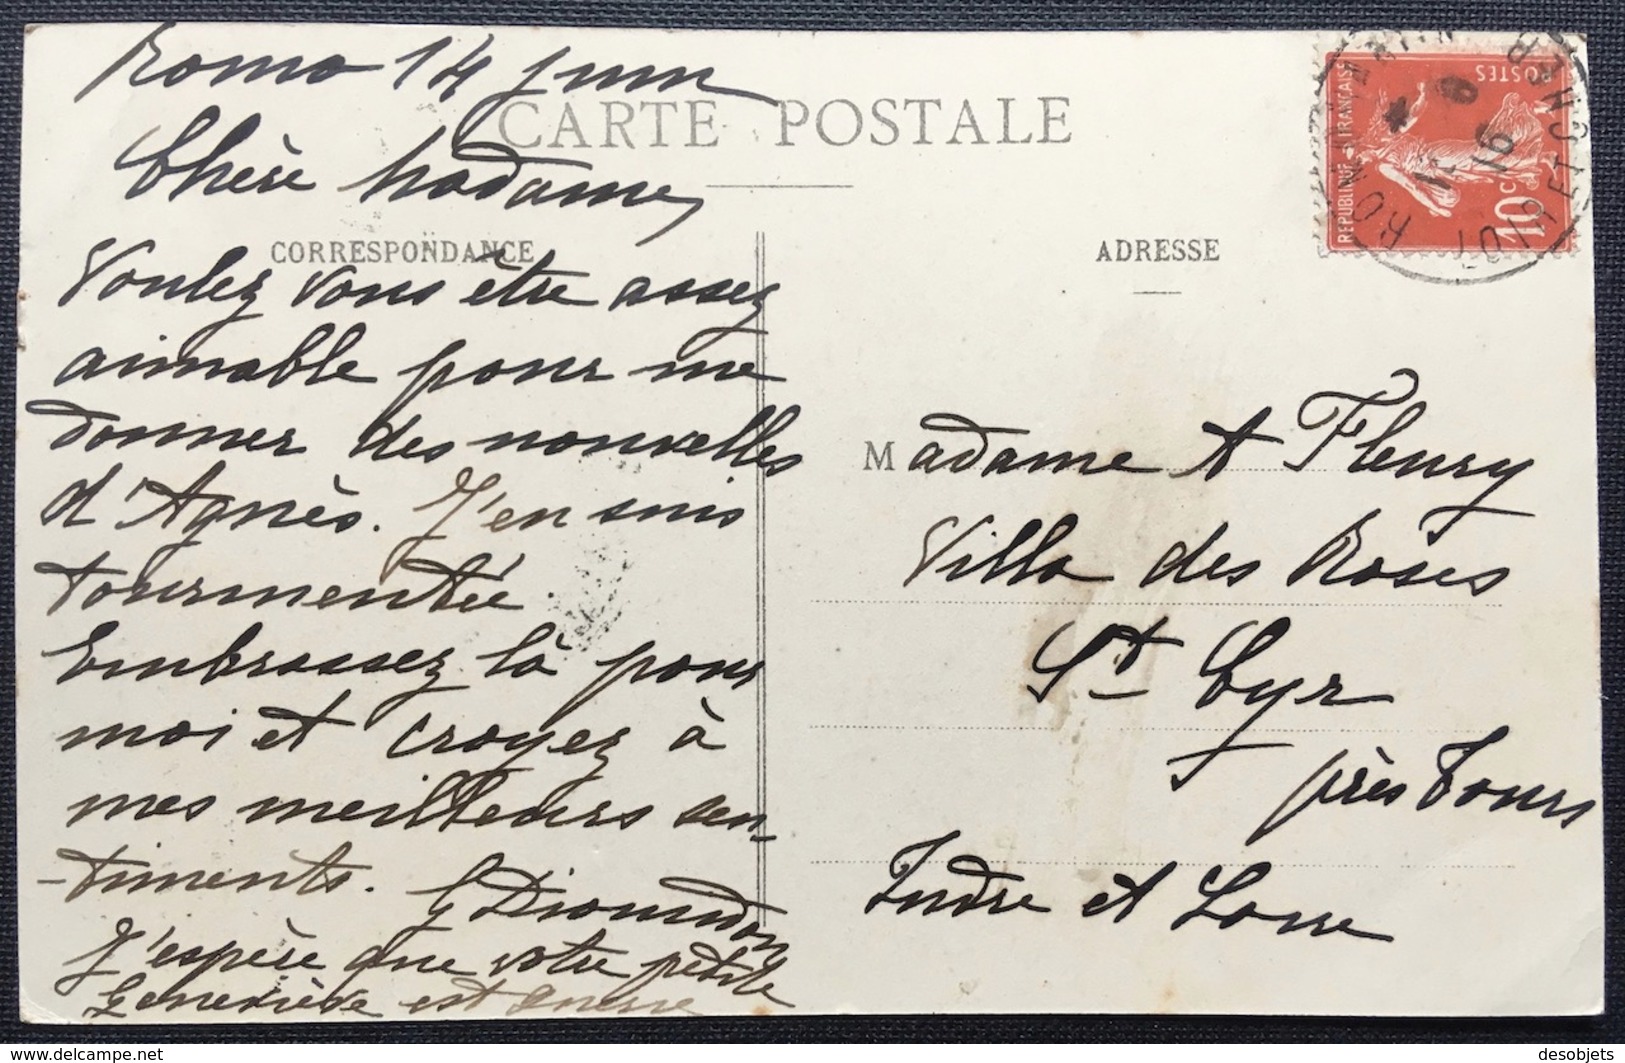 Romo 14 juin
CARTE POSTALE
Chère Madame,
CORRESPONDANCE
Voulez vous être assez
aimable pour me
donner des nouvelles
d'Agnès. J'en suis
tourmentée.
Embrassez là pour
moi et croyez à
mes meilleurs sen-
-timents. G Dioumdon
J'espère que votre petite
Geneviève est
ADRESSE
Madame A Fleury
Villa des Roses
St Cyr
près Tours
Indre et Loire
REPUBLIQUE FRANÇAISE
POSTES
10c
16
LOIR ET CHER
delcampe.net
desobjets